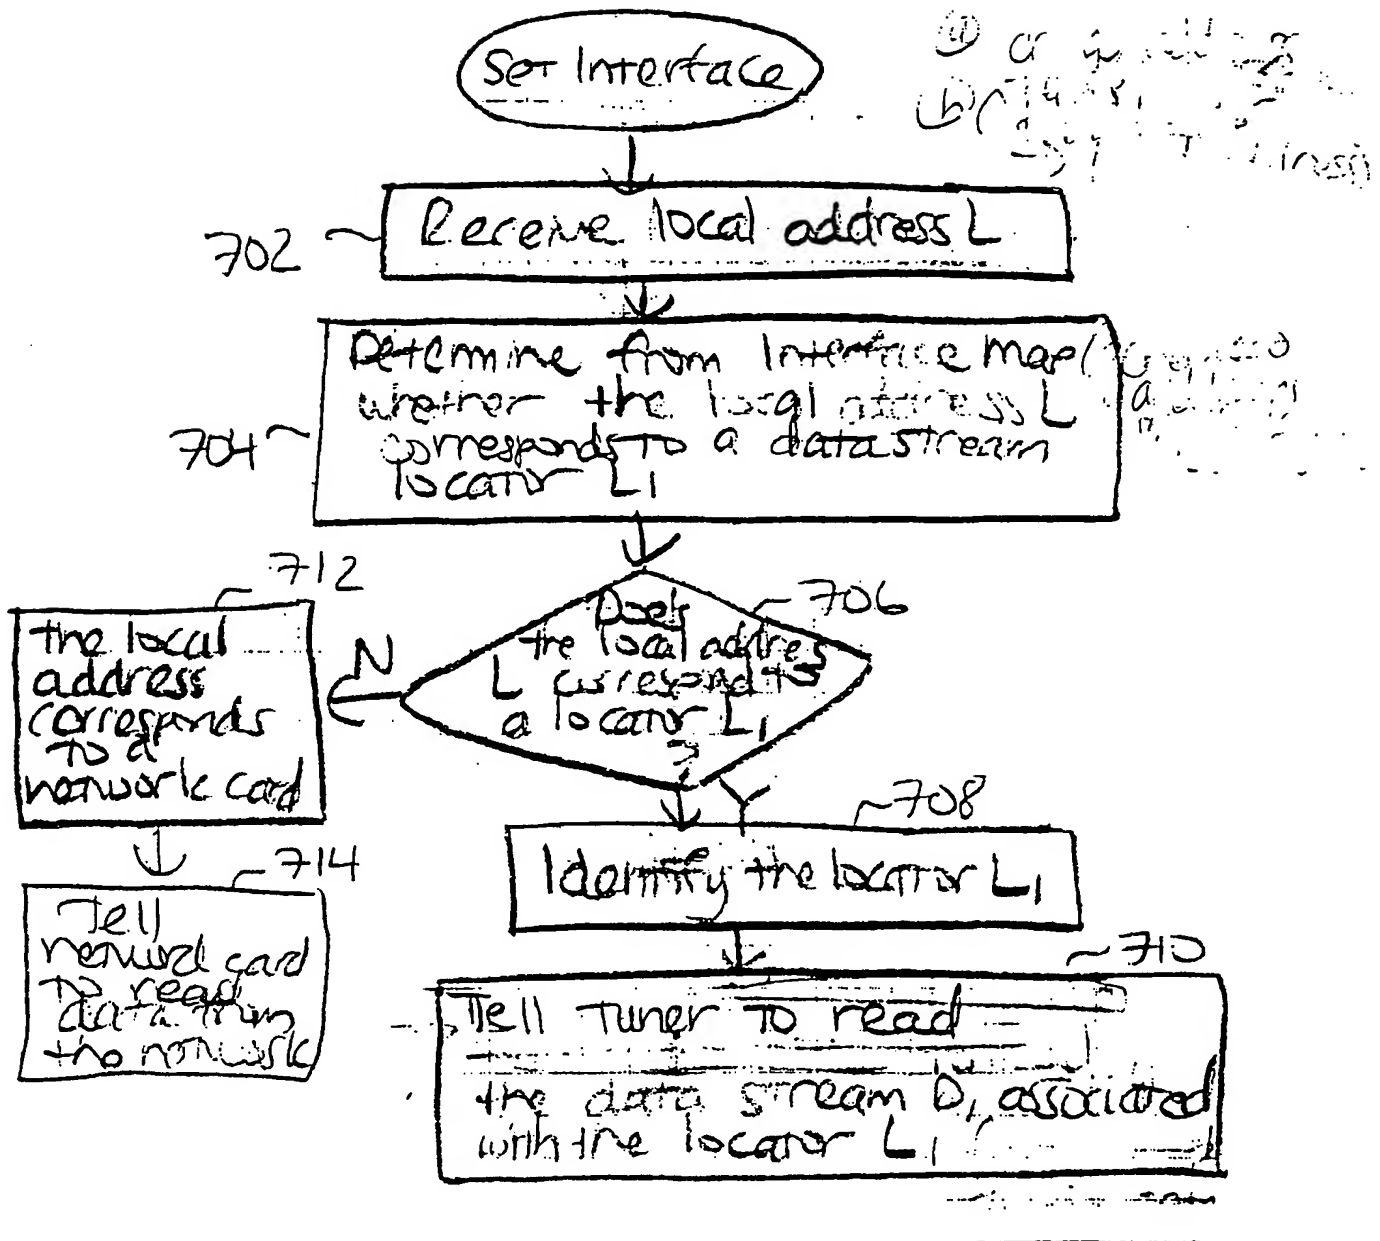 Set Interface
702
Receive local address L
704
Determine from Interface Map (
whether the local address L
corresponds to a data stream
locator L1
706
Does
the local address
L correspond to
a locator L1
?
N
712
the local
address
corresponds
to a
network card
714
Tell
network card
to read
data from
the network
Y
708
Identify the locator L1
710
Tell tuner to read
the data stream D1 associated
with the locator L1